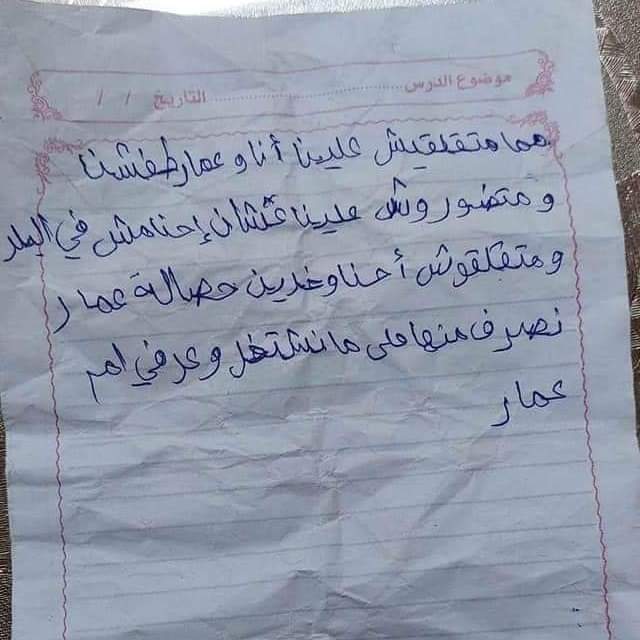 موضوع الدرس .................................. التاريخ / /
مما متقلقيش علينا أنا و عمار طفشنا
ومتضوروش علينا عشان إحنا مش في البلد
ومتقلقوش أحنا وخدين حصالة عمار
نصرف منها ملى مانشتغل وعرفي ام
عمار